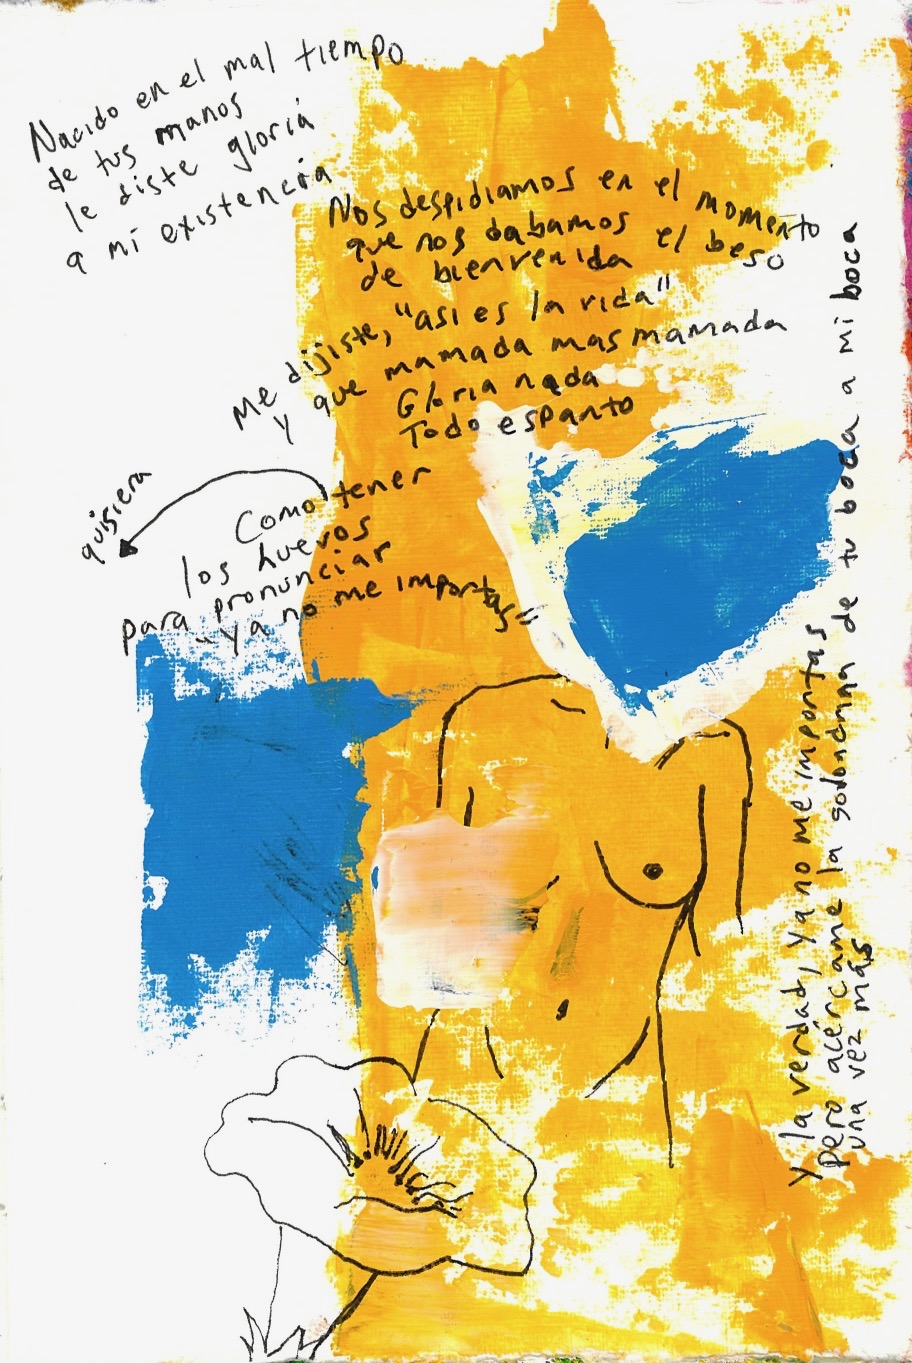 Nacido en el mal tiempo
de tus manos
le diste gloria
a mi existencia
Nos despidiamos en el momento
que nos dabamos el beso
de bienvenida
Me dijiste, "asi es la vida"
y que mamada mas mamada
Gloria nada
Todo espanto
quisiera
Como tener
los huevos
para pronunciar
"Ya no me importas"
Y la verdad, ya no me importas
pero acércame la de tu boca a mi boca
una vez más